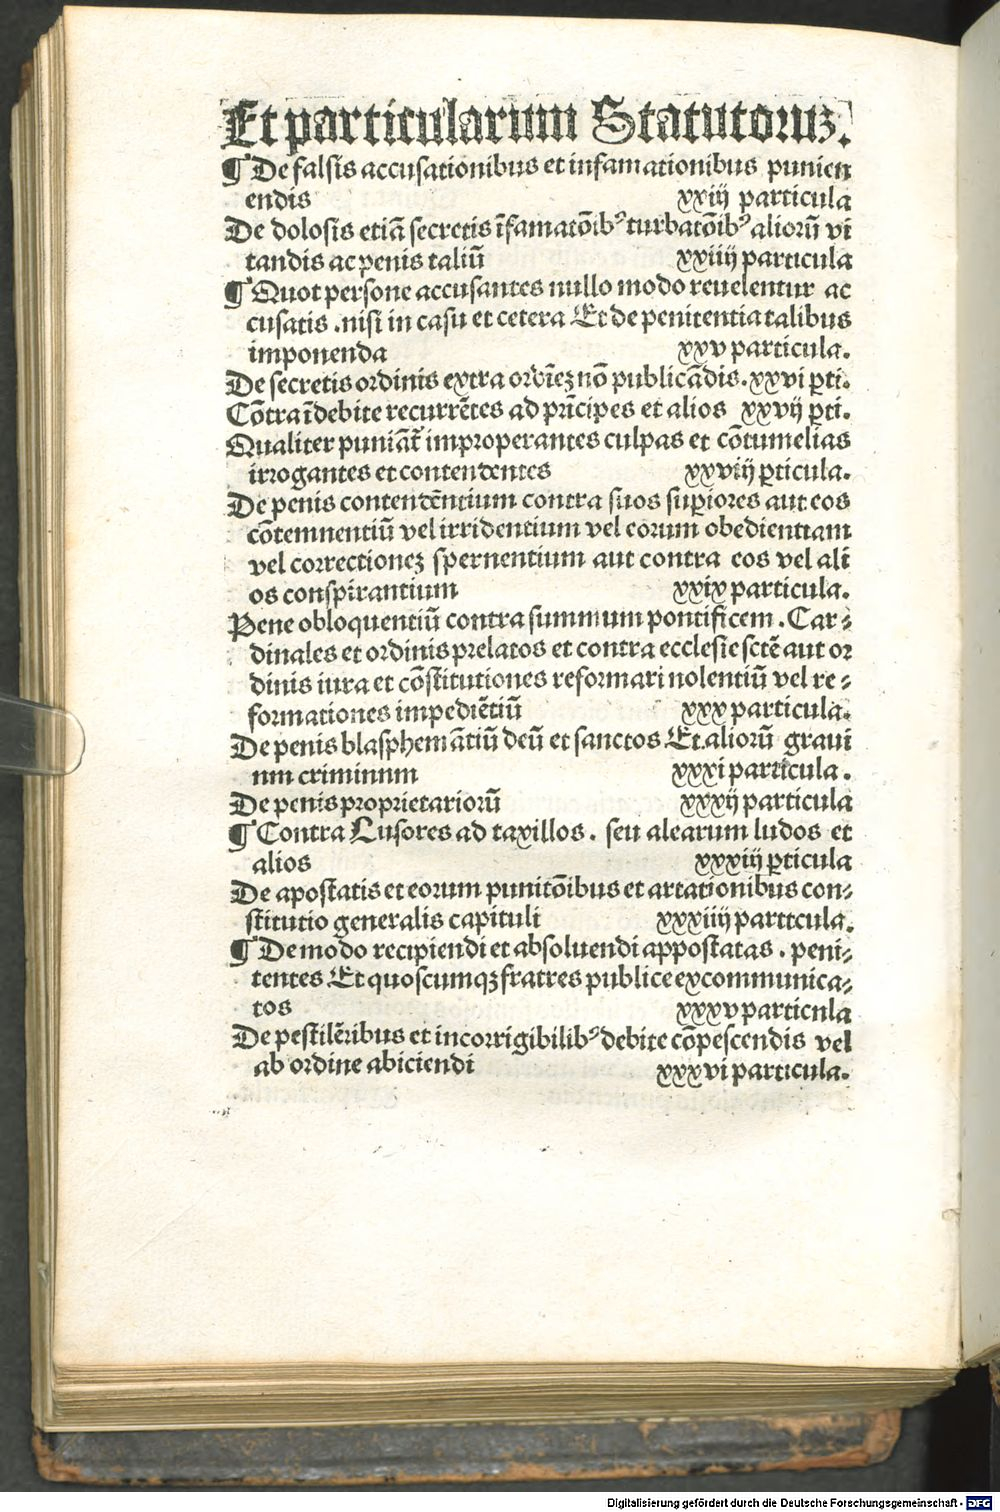 Et particularum Statutoruꝫ.
¶ De falsis accusationibus et infamationibus punien
endis xxiij particula
De dolosis etiā secretis īfamatōibꝰ turbatōibꝰ aliorū vi
tandis ac penis taliū xxiiij particula
¶ Quot persone accusantes nullo modo reuelentur ac
cusatis .nisi in casu et cetera Et de penitentia talibus
imponenda xxv particula.
De secretis ordinis extra ordīeꝫ nō publicādis. xxvi ꝑti.
Cōtra īdebite recurrētes ad prīcipes et alios xxvij ꝑti.
Qualiter puniāt᷑ improperantes culpas et cōtumelias
irrogantes et contendentes xxviij ꝑticula.
De penis contendētium contra suos suꝑiores aut eos
cōtemnentiū vel irridentium vel eorum obedientiam
vel correctioneꝫ spernentium aut contra eos vel ali
os conspirantium xxix particula.
Pene obloquentiū contra summum pontificem . Car⸗
dinales et ordinis prelatos et contra ecclesie sctē aut or
dinis iura et cōstitutiones reformari nolentiū vel re⸗
formationes impediētiū xxx particula.
De penis blasphemātiū deū et sanctos Et aliorū graui
um criminum xxxi particula .
De penis proprietariorū xxxij particula
¶ Contra Lusores ad taxillos . seu alearum ludos et
alios xxxiij ꝑticula
De apostatis et eorum punitōibus et artationibus con⸗
stitutio generalis capituli xxxiiij particula.
¶ De modo recipiendi et absoluendi appostatas . peni⸗
tentes Et quoscumqꝫ fratres publice excommunica⸗
tos xxxv particnla
De pestilēribus et incorrigibilibꝰ debite cōpescendis vel
ab ordine abiciendi xxxvi particula.
Digitalisierung gefördert durch die Deutsche Forschungsgemeinschaft - DFG